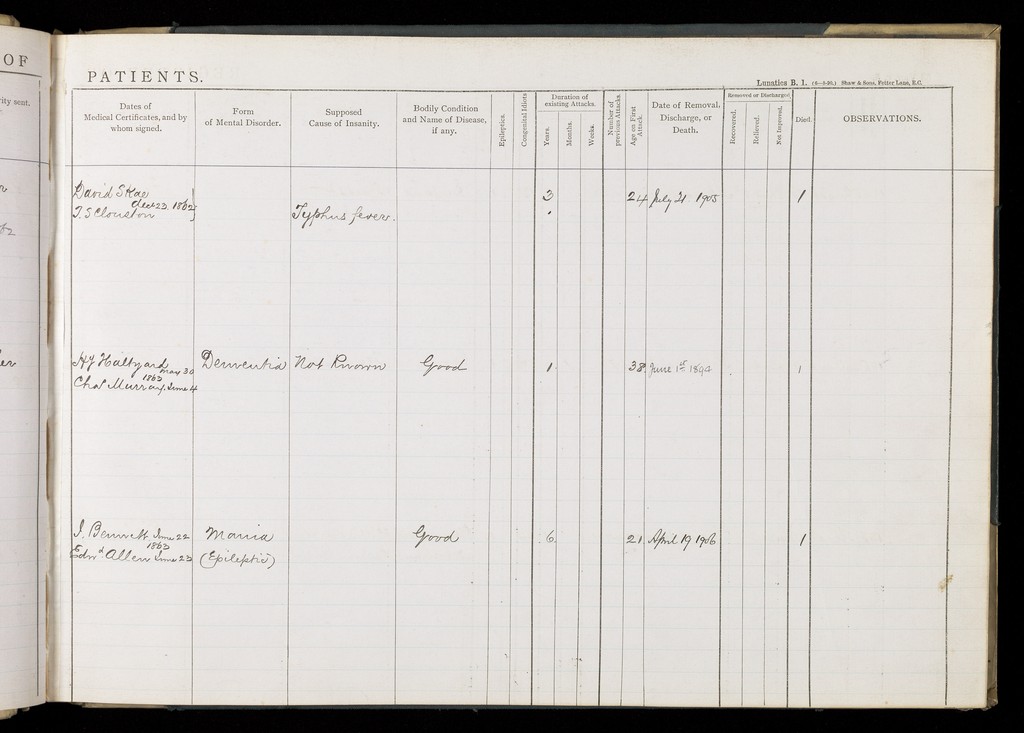 OF
PATIENTS.
Lunatics B. 1. (6—3-90.) Shaw & Sons, Fetter Lane, E.C.
ity sent.
Dates of
Medical Certificates, and by
whom signed.
Form
of Mental Disorder.
Supposed
Cause of Insanity.
Bodily Condition
and Name of Disease,
if any.
Epileptics.
Congenital Idiots
Duration of
existing Attacks.
Years.
Months.
Weeks.
Number of
previous Attacks.
Age on First
Attack.
Date of Removal,
Discharge, or
Death.
Removed or Discharged
Recovered.
Relieved.
Not Improved.
Died.
OBSERVATIONS.
David Skae
Dec 23 1862
T. S Clouston
Typhus fever.
3
24
July 21 1905
1
May 30
1863
Chas Murray. June 4
Dementia
Not Known
Good
1
38
June 1st 1894
1
J. Bennett June 22
1863
Edwd. Allen June 23
Mania
(Epileptic)
Good
6
21
April 19 1906
1